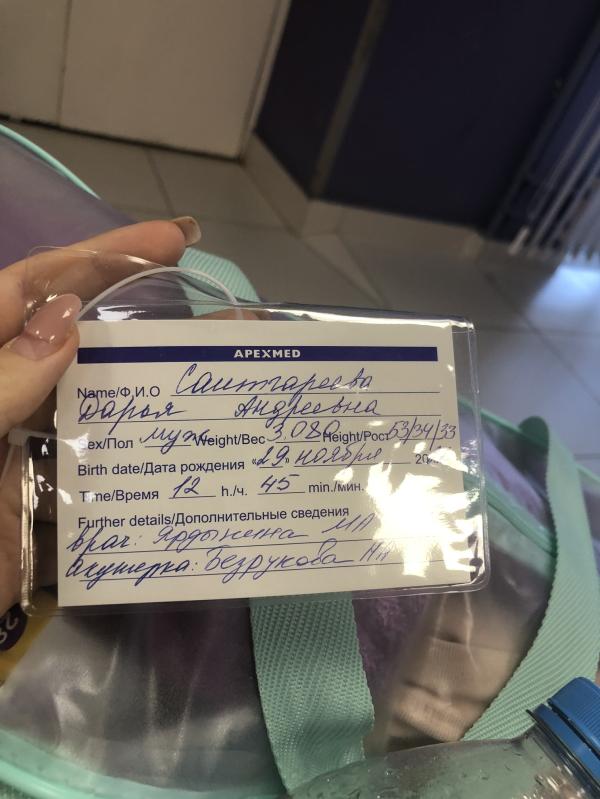 APEXMED
Name/Ф.И.О Саитгареева
Дарья Андреевна
Sex/Пол муж Weight/Вес 3.080 Height/Рост 53/34/33
Birth date/Дата рождения «29» ноября 20
Time/Время 12 h./ч. 45 min./мин.
Further details/Дополнительные сведения
врач: МА
Акушерка: Безрукова